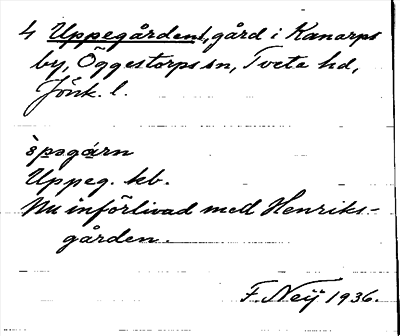 4 Uppegården, gård i Kanarps
by, Öggestorps sn, Tveta hd,
Jönk. l.
ùpəgárn
Uppeg. kb.
Nu införlivad med Henriks-
gården.
F. Neij 1936.